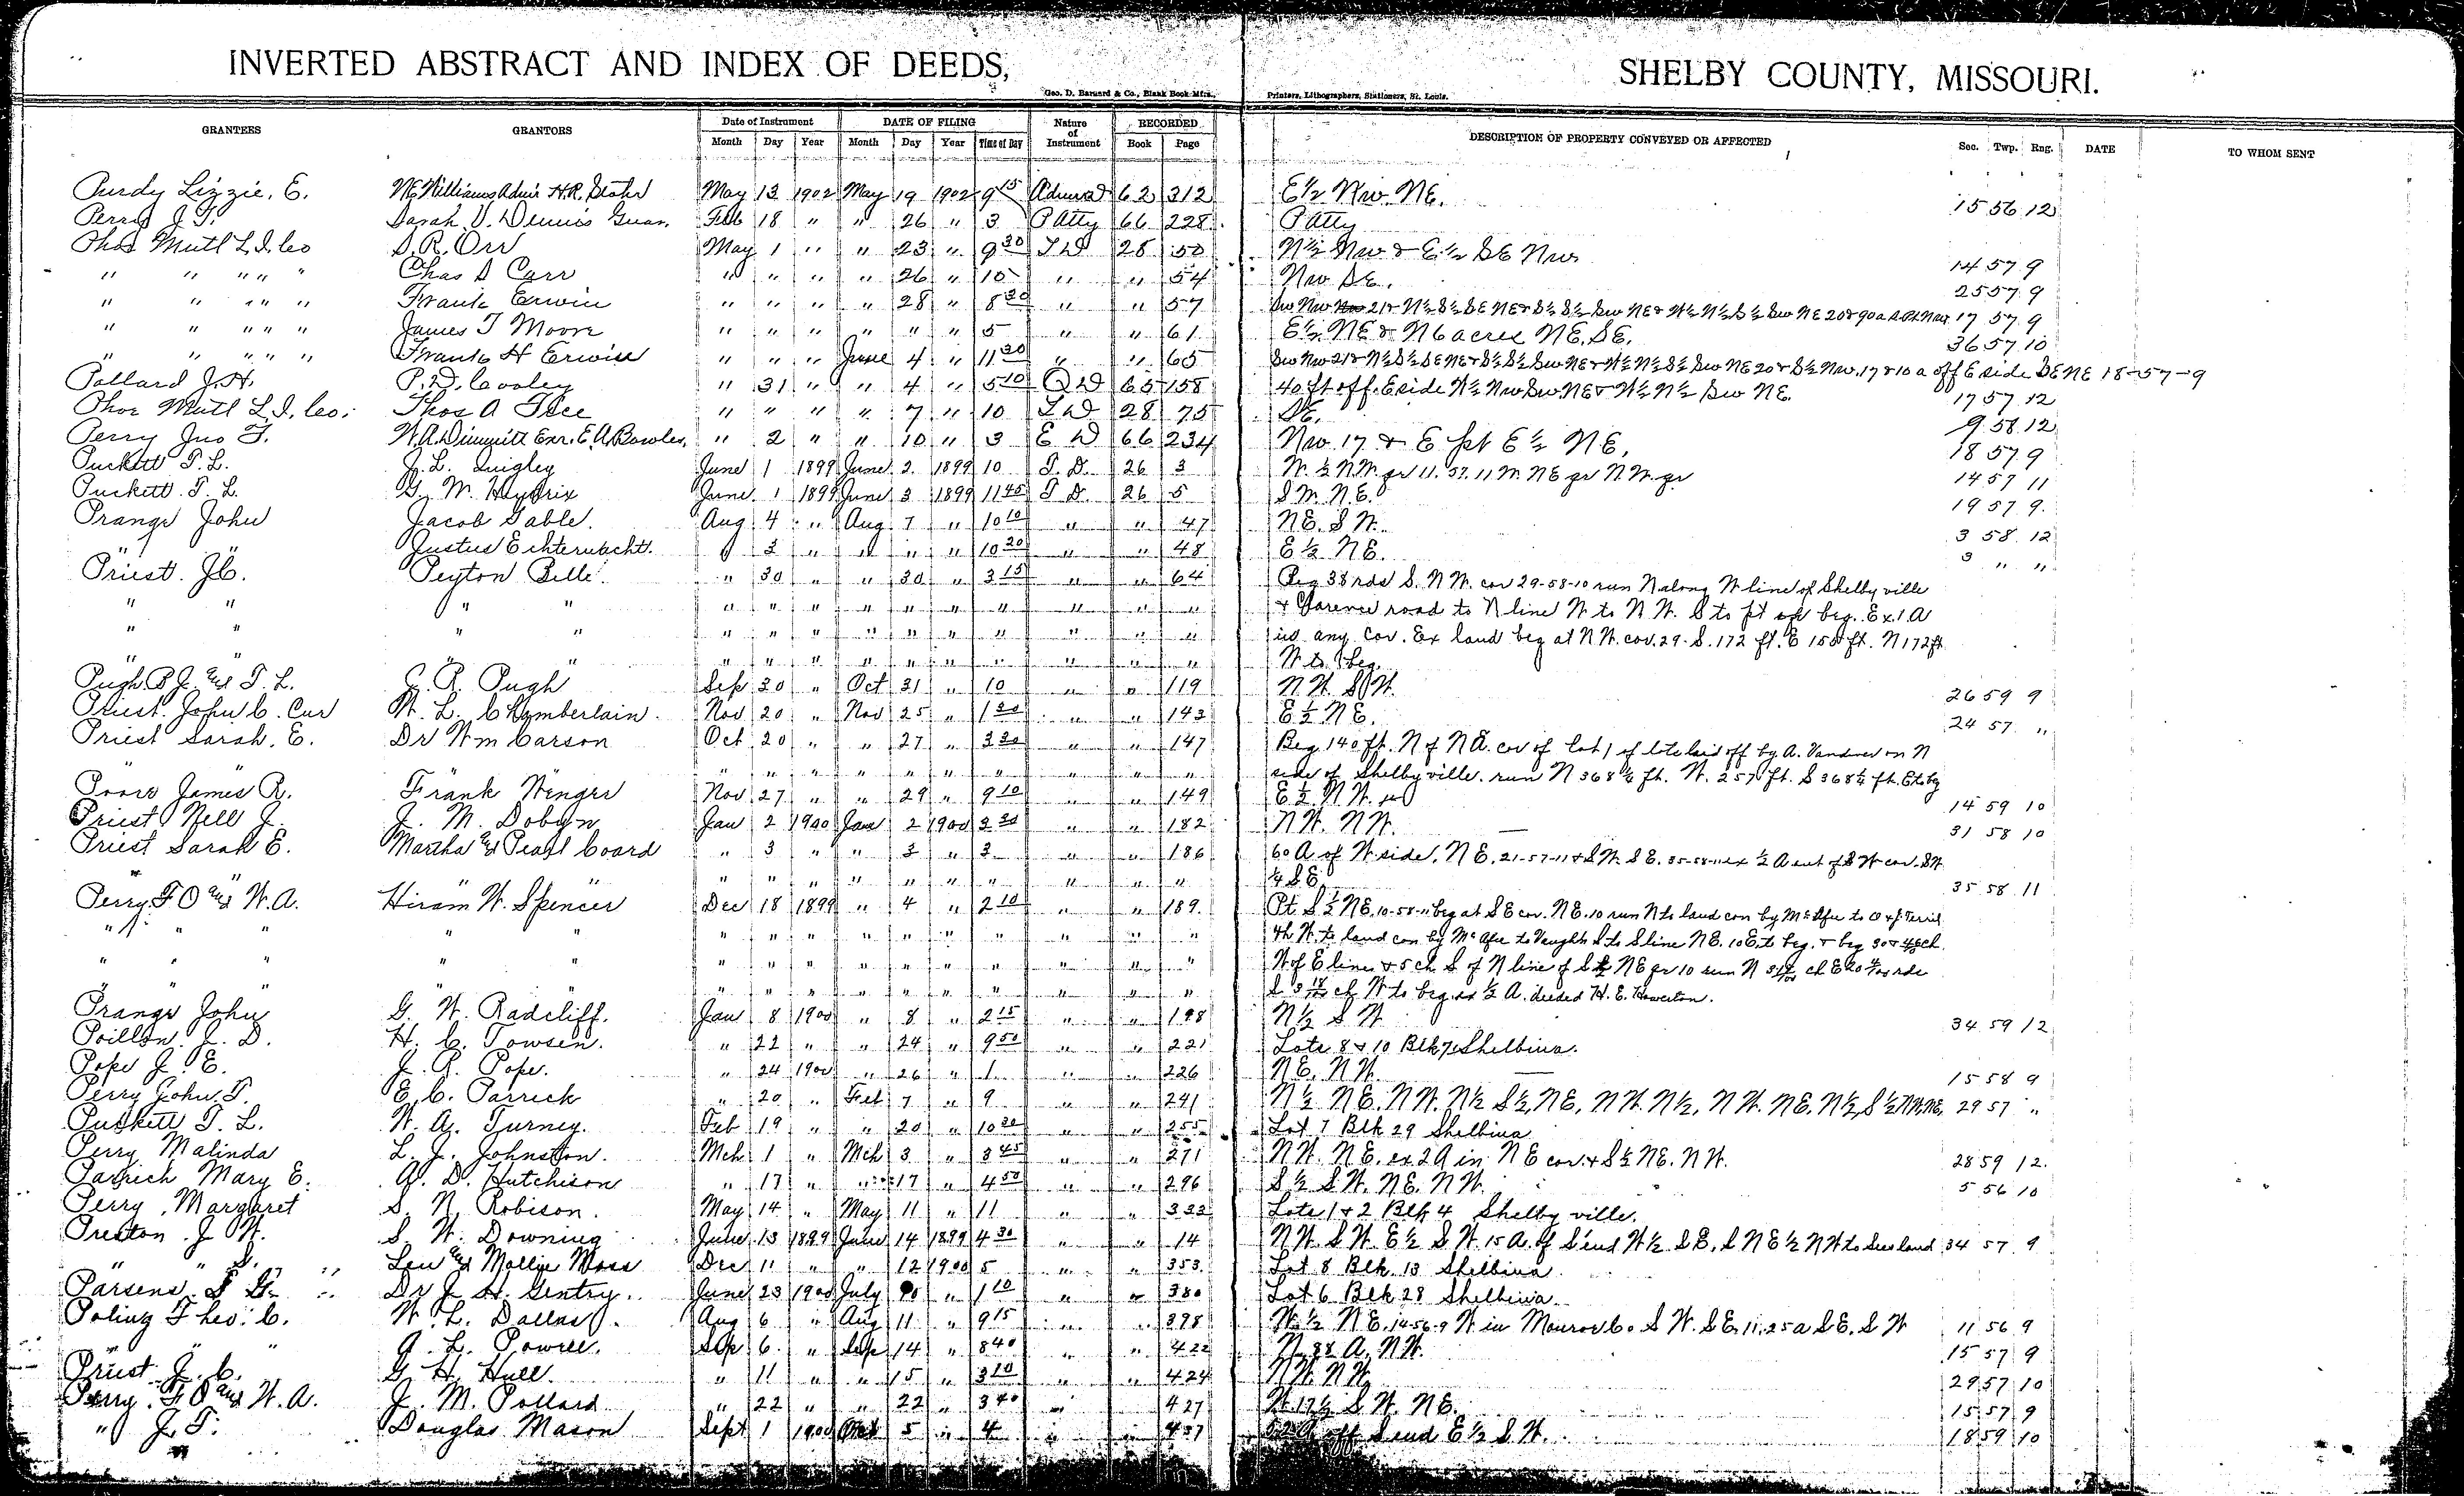 INVERTED ABSTRACT AND INDEX OF DEEDS, SHELBY COUNTY, MISSOURI.
Geo. D. Barnard & Co., Blank Book Mfrs., Printers, Lithographers, Stationers, St. Louis.
GRANTEES GRANTORS Date of Instrument DATE OF FILING Nature of Instrument RECORDED DESCRIPTION OF PROPERTY CONVEYED OR AFFECTED Sec. Twp. Rng. DATE TO WHOM SENT
Month Day Year Month Day Year Time of Day Book Page
Purdy Lizzie. E. May 13 1902 May 19 1902 9 15 62 312 E½ Nw. NE. 15 56 12
Perry J. T. Sarah V. Dennis Guar. Feb 18 " " 26 " 3 P Atty 66 228 P Atty
Phoe Mutl L. I. Co S. R. Orr May 1 " " 23 " 9 30 T D 28 50 N½ Nw & E½ SE Nw 14 57 9
" " " " " Chas S Carr " " " " 26 " 10 " " 54 Nw SE. 25 57 9
" " " " " Frank Erwin " " " " 28 " 8 30 " " 57 17 57 9
" " " " " James T Moore " " " " " " 5 " " 61 E½ NE & N 6 acres NE. SE. 36 57 10
" " " " " Frank H Erwin " " " June 4 " 11 20 " " 65 Sw Nw 21 & N½ S½ SE NE & S½ S½ Sw NE & W½ N½ S½ Sw NE 20 & S½ Nw. 17 & 10 a off E side SE NE 18-57-9
Pollard J. H. P. D. Cooley " 31 " " 4 " 5 10 Q D 65 158 40 ft off. E side W½ Nw Sw. NE & W½ N½ Sw NE. 17 57 12
Phoe Mutl L. I. Co. Thos A " " " " 7 " 10 T D 28 75 SE. 9 58 12
Perry Jno T. W. A. Dimmitt Exr. E. A. Bowles " 2 " " 10 " 3 E D 66 234 Nw 17 & E pt E½ NE. 18 57 9
Puckett T. L. J. L. Quigley June 1 1899 June 2 1899 10 T. D. 26 3 W. ½ N.W. qr 11. 57. 11 W. NE qr N.W. qr 14 57 11
Puckett. T. L. G. W. Hendrix June 1 1899 June 3 1899 11 45 T D. 26 5 S W. N. E. 19 57 9
Prange John Jacob Gable. Aug 4 " Aug. 7 " 10 10 " " 47 NE. S W. 3 58 12
" " Justus Echternacht. " 3 " " " " 10 20 " " 48 E ½ NE. 3 " "
Priest. J. C. Peyton Belle. " 30 " " 30 " 3 15 " " 64 Beg 38 rds S. N W. cor 29-58-10 run N along W line of Shelbyville
" " " " " " " " " " " " " " & Clarence road to N line W to N W. S to pt of beg. Ex. 1 A
" " " " " " " " " " " " " " in any cor. Ex land beg at N W. cor. 29. S. 172 ft. E 158 ft. N 172 ft
" " " " " " " " " " " " " " W to beg.
Pugh B J. and T. L. J. R. Pugh Sep 30 " Oct 31 " 10 " " 119 N W. S W. 26 59 9
Priest. John C. Cur W. L. Chamberlain. Nov 20 " Nov 25 " 1 30 " " 143 E ½ NE. 24 57 "
Priest Sarah. E. Dr Wm Carson Oct 20 " " 27 " 3 30 " " 147 Beg 140 ft. N of N E. cor of Lot 1 of lots laid off by A. on N
" " " " " " " " " " " " side of Shelbyville. run N 368 ½ ft. W. 257 ft. S 368 ½ ft. E to beg
Poore James R. Frank Wenger Nov 27 " " 29 " 9 10 " " 149 E ½ N W. 14 59 10
Priest Nell J. J. M. Dobyn Jan 2 1900 Jan 2 1900 3 30 " " 182 N W. N W. 31 58 10
Priest Sarah E. Martha and Pearl Coard " 3 " " 3 " 3 " " 186 60 A of W side. N E. 21-57-11 & S W. S E. 35-58-11 ex ½ A out of S W cor. S W
" " " " " " " " " " ¼ S E. 35 58 11
Perry. F O and W. A. Hiram W. Spencer Dec 18 1899 " 4 " 2 10 " " 189 Pt S ½ NE. 10-58-11 beg at S E cor. NE. 10 run N to land con by McAfee to
" " " " " " " " " " " " " " th W. to land con by Mc Afee to Vaughn S to S line NE. 10 E. to beg. & beg
" " " " " " " " " " " " " " W of E line & 5 ch S of N line of S ½ NE qr 10 run N
" " " " " " " " " " " " ch W to beg. ex ½ A. deeded H. E. Howerton.
Prange John G. W. Radcliff. Jan 8 1900 " 8 " 2 15 " " 198 N ½ S W 34 59 12
Poillon. J. D. H. C. Towsen. " 22 " " 24 " 9 50 " " 221 Lots 8 & 10 Blk 7 Shelbina.
Pope J. E. J. R. Pope. " 24 1900 " 26 " 1 " " 226 NE. N W. 15 58 9
Perry John. T. E. C. Parrick " 20 " Feb 7 " 9 " " 241 N ½ NE. N W. N ½ S ½, NE, N W. N ½, N W. NE. N ½, S ½ NW. NE. 29 57 "
Puckett T. L. W. A. Turney. Feb 19 " " 20 " 10 20 " " 255 Lot 7 Blk 29 Shelbina
Perry Malinda L. J. Johnston. Mch 1 " Mch 3 " 3 45 " " 271 N W. NE. ex 2 A in NE cor. & S ½ NE. N W. 28 59 12
Parrich Mary E. A. D. Hutchison " 17 " " 17 " 4 50 " " 296 S ½ S W. NE. N W. 5 56 10
Perry. Margaret S. N. Robison. May 14 " May 11 " 11 " " 322 Lots 1 & 2 Blk 4 Shelbyville.
Preston. J W. S. W. Downing June 13 1899 June 14 1899 4 30 " " 14 N W. S W. E ½ S W. 15 A. of S end W ½ S E. 34 57 9
" " S. Leu and Mollie Moss Dec 11 " " 12 1900 5 " " 353 Lot 8 Blk 13 Shelbina
Parsens. S G. Dr J. H. Gentry. June 23 1900 July " 1 10 " " 380 Lot 6 Blk 28 Shelbina
Poling Theo. C. W. L. Dallas. Aug 6 " Aug 11 " 9 15 " " 398 W ½ NE. 14-56-9 W in Monroe Co. S W. S E. 11. 25 a S E. S W 11 56 9
" " A. L. Powell. Sep 6 " Sep 14 " 8 40 " " 422 N 38 A. N W. 15 57 9
Priest J. C. G. H. Hull. " 11 " " 15 " 3 10 " " 424 N W. N W. 29 57 10
Perry. F O and W. A. J. M. Pollard " 22 " " 22 " 3 40 " " 427 W. 17½ S W. NE. 15 57 9
" J. T. Douglas Mason Sept 1 1900 Oct 5 " 4 " " 437 off S end E ½ S W. 18 59 10